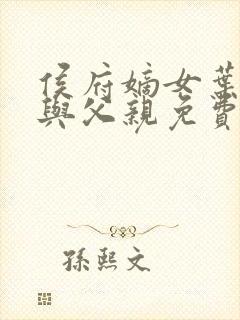 侯府嫡女葉
與父親免費
孫熙文